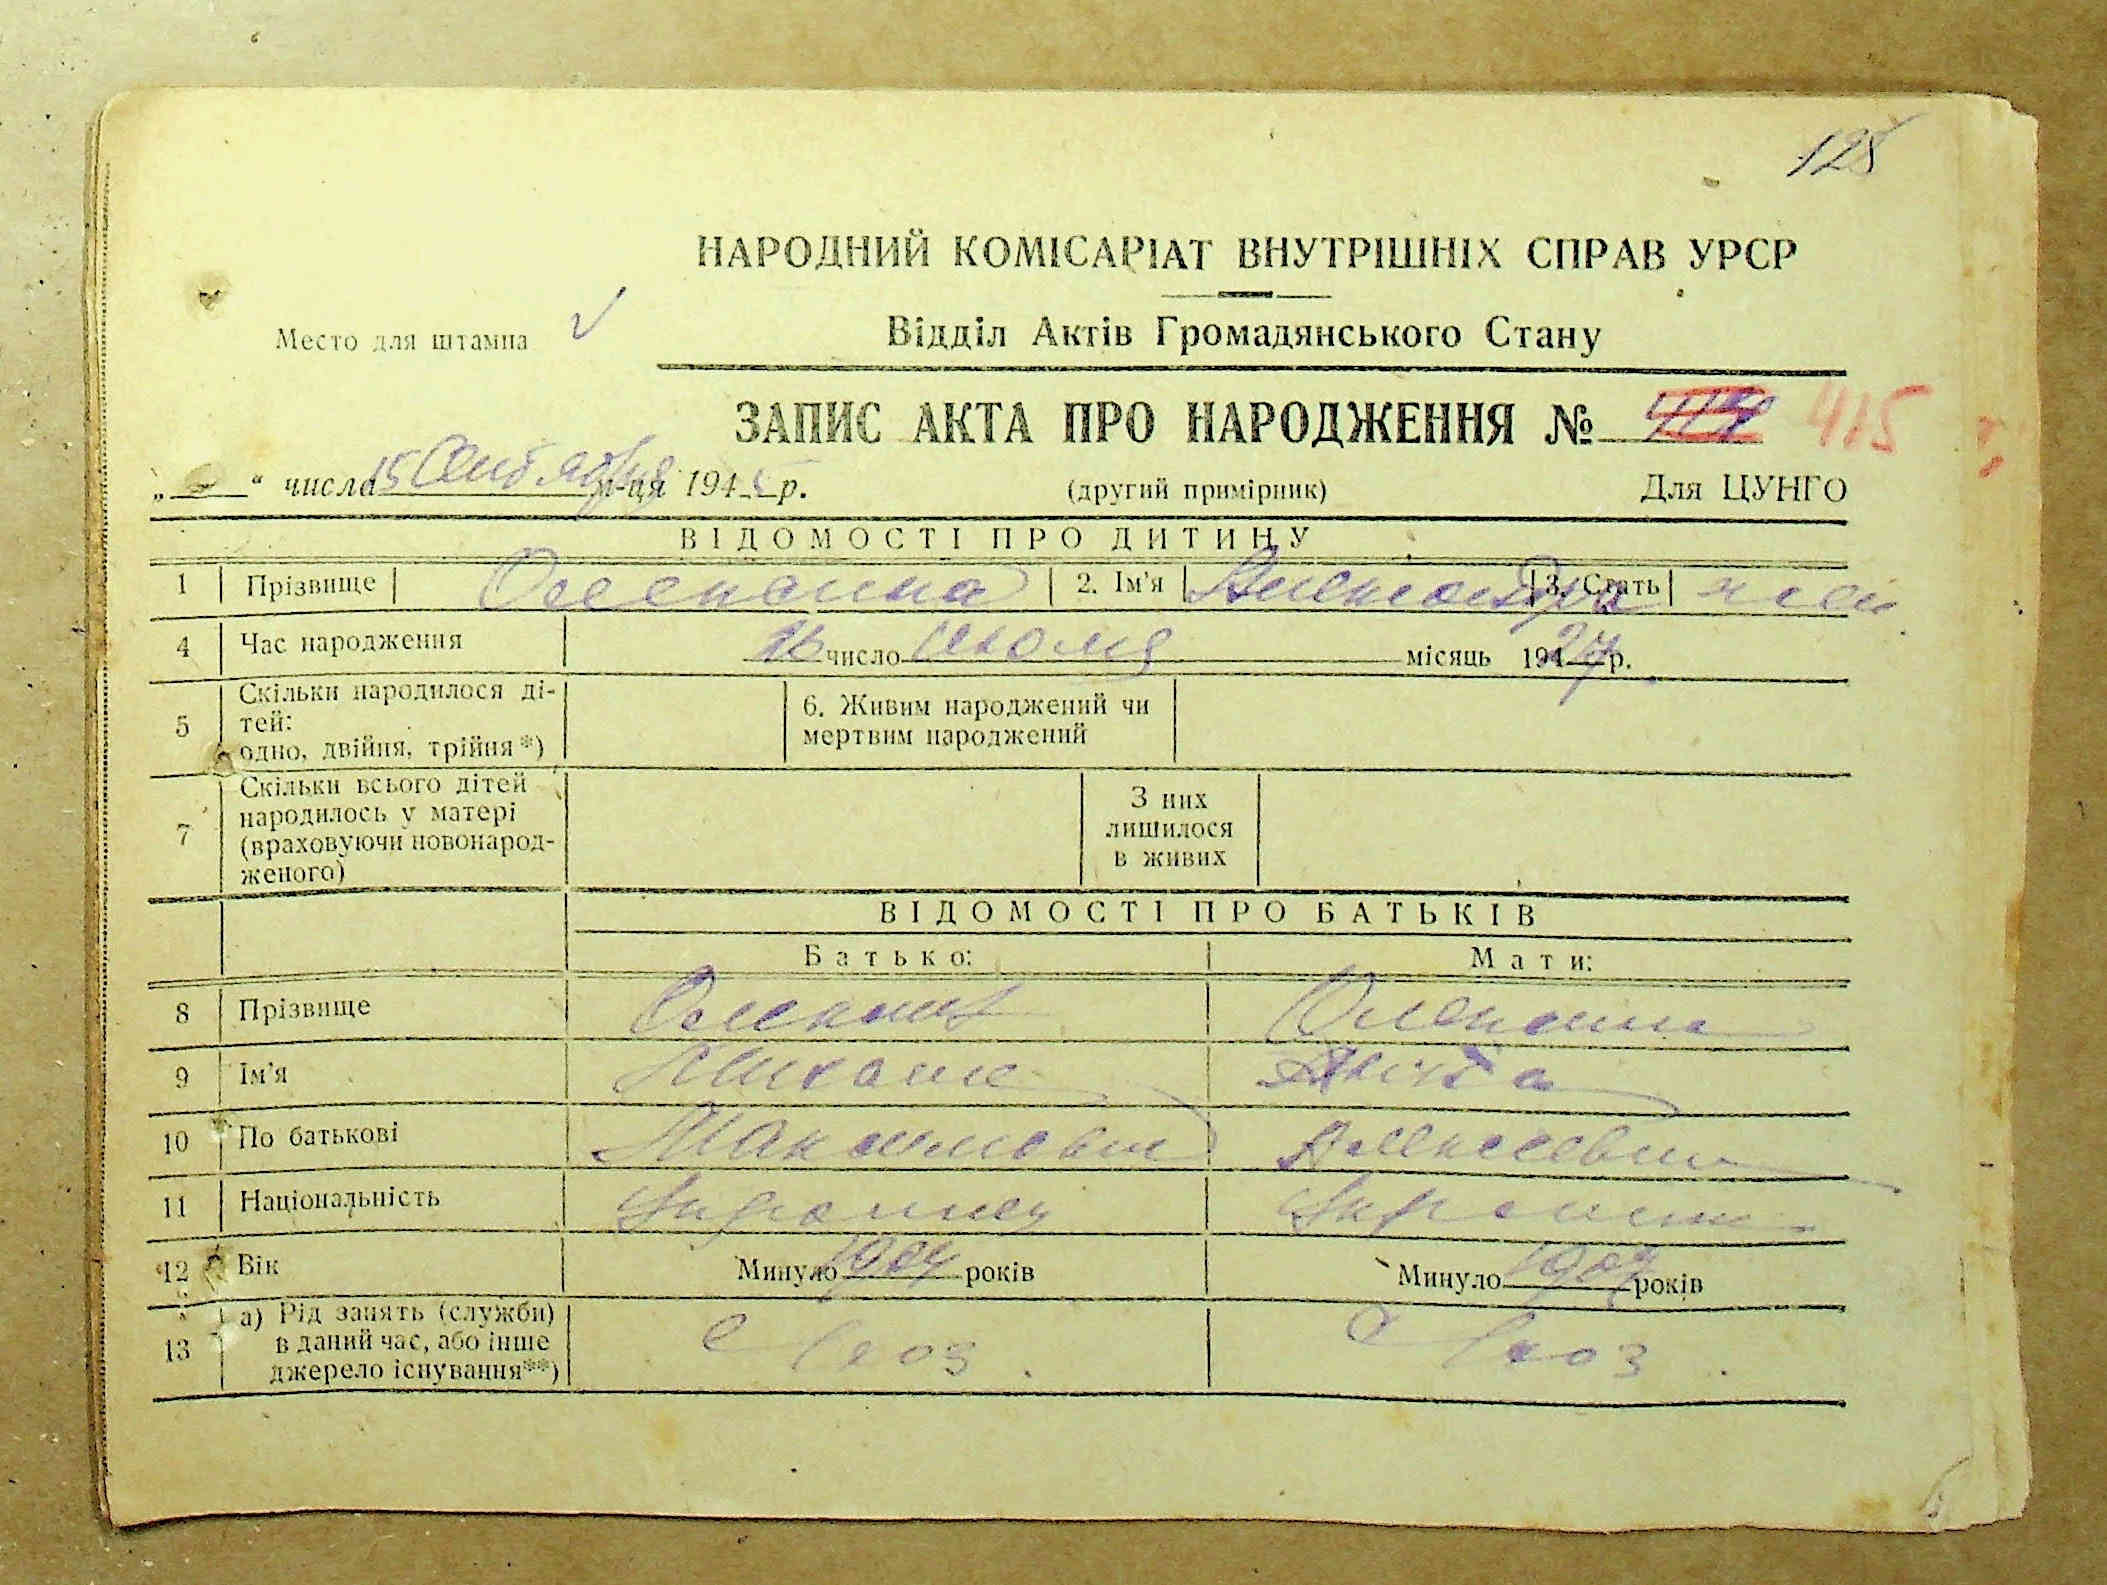 125
НАРОДНИЙ КОМІСАРІАТ ВНУТРІШНІХ СПРАВ УРСР
Место для штампа
Відділ Актів Громадянського Стану
ЗАПИС АКТА ПРО НАРОДЖЕННЯ № 415
„ “ числа 15 Сентября м-ця 194 р.
(другий примірник)
Для ЦУНГО
ВІДОМОСТІ ПРО ДИТИНУ
1 Прізвище 2. Ім’я Александра 3. Стать жен.
4 Час народження 16 число Июля місяць 1927 р.
5 Скільки народилося ді-
тей:
одно, двійня, трійня*)
6. Живим народжений чи
мертвим народжений
7 Скільки всього дітей
народилось у матері
(враховуючи новонарод-
женого)
З них
лишилося
в живих
ВІДОМОСТІ ПРО БАТЬКІВ
Батько: Мати:
8 Прізвище
9 Ім’я Михаил
10 По батькові Максимович Алексеевна
11 Національність Украинец Украинка
12 Вік Минуло 1904 років Минуло 1907 років
13 а) Рід занять (служби)
в даний час, або інше
джерело існування**)
с/хоз. с/хоз.